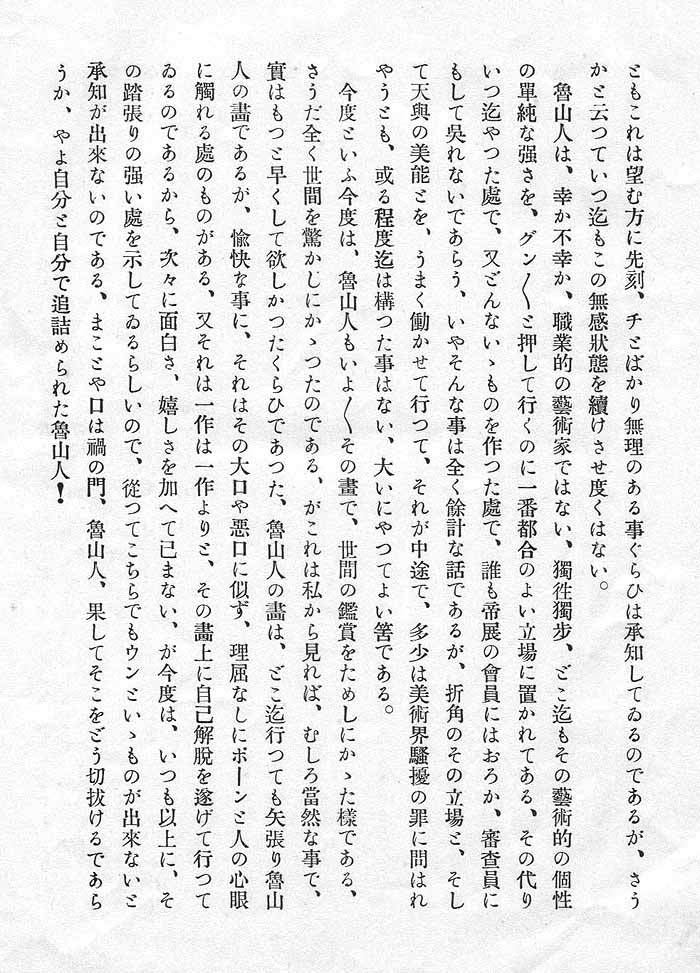 ともこれは望む方に先刻、チとばかり無理のある事ぐらひは承知してゐるのであるが、さう
かと云つていつ迄もこの無感狀態を續けさせ度くはない。
魯山人は、幸か不幸か、職業的の藝術家ではない、獨徃獨步、どこ迄もその藝術的の個性
の單純な强さを、グン〱と押して行くのに一番都合のよい立場に置かれてある、その代り
いつ迄やつた處で、又どんないゝものを作つた處で、誰も帝展の會員にはおろか、審査員に
もして吳れないであらう、いやそんな事は全く餘計な話であるが、折角のその立場と、そし
て天與の美能とを、うまく働かせて行つて、それが中途で、多少は美術界騷擾の罪に問はれ
やうとも、或る程度迄は構つた事はない、大いにやつてよい筈である。
今度といふ今度は、魯山人もいよ〱その畫で、世間の鑑賞をためしにかゝた樣である、
さうだ全く世間を驚かしにかゝつたのである、がこれは私から見れば、むしろ當然な事で、
實はもつと早くして欲しかつたくらひであつた、魯山人の畵は、どこ迄行つても矢張り魯山
人の畵であるが、愉快な事に、それはその大口や悪口に似ず、理屈なしにボーンと人の心眼
に觸れる處のものがある、又それは一作は一作よりと、その畵上に自己解脫を遂げて行つて
ゐるのであるから、次々に面白さ、嬉しさを加へて已まない、が今度は、いつも以上に、そ
の踏張りの强い處を示してゐるらしいので、從つてこちらでもウンといゝものが出來ないと
承知が出來ないのである、まことや口は禍の門、魯山人、果してそこをどう切拔けるであら
うか、やよ自分と自分で追詰められた魯山人！